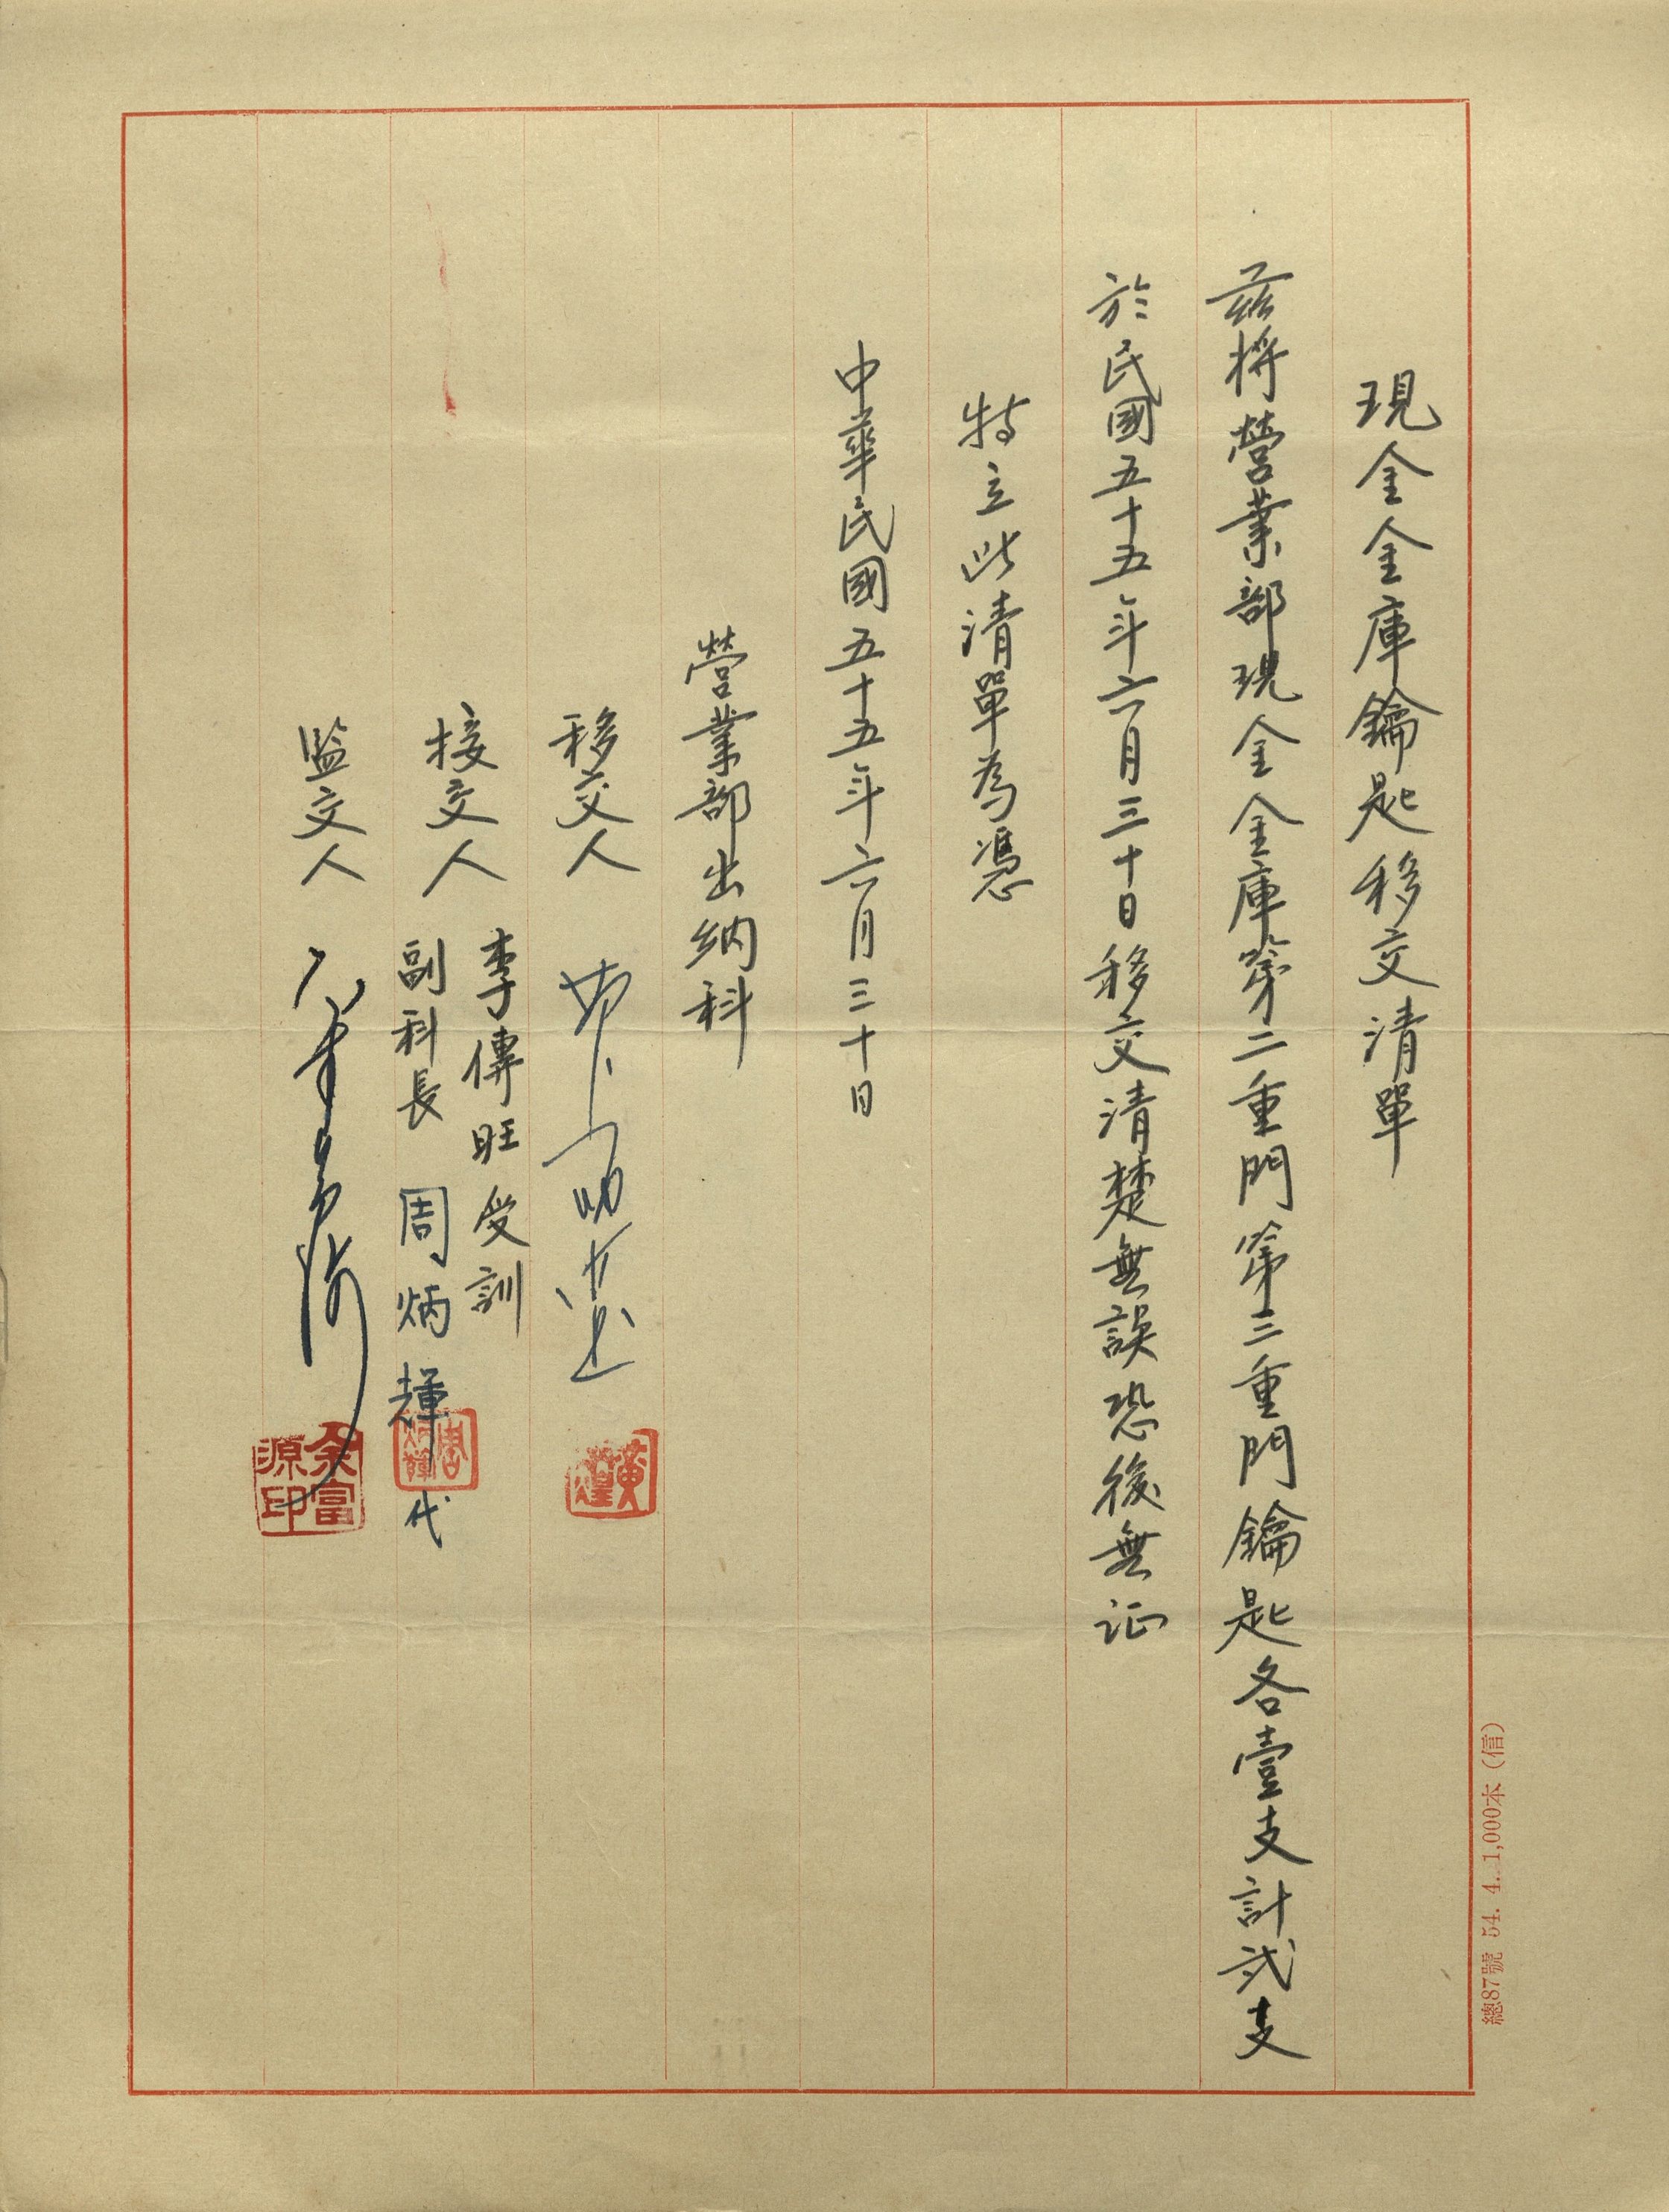 現金金庫鑰匙移交清單
茲將營業部現金金庫第二重門第三重門鑰匙各壹支計弍支
於民國五十五年六月三十日移交清楚無誤恐後無証
特立此清單為憑
中華民國五十五年六月三十日
營業部出納科
移交人
黃
接交人 李傳旺受訓
副科長 周炳輝代
周炳輝
監交人
余富源印
總87號 54. 4. 1,000本 (信)